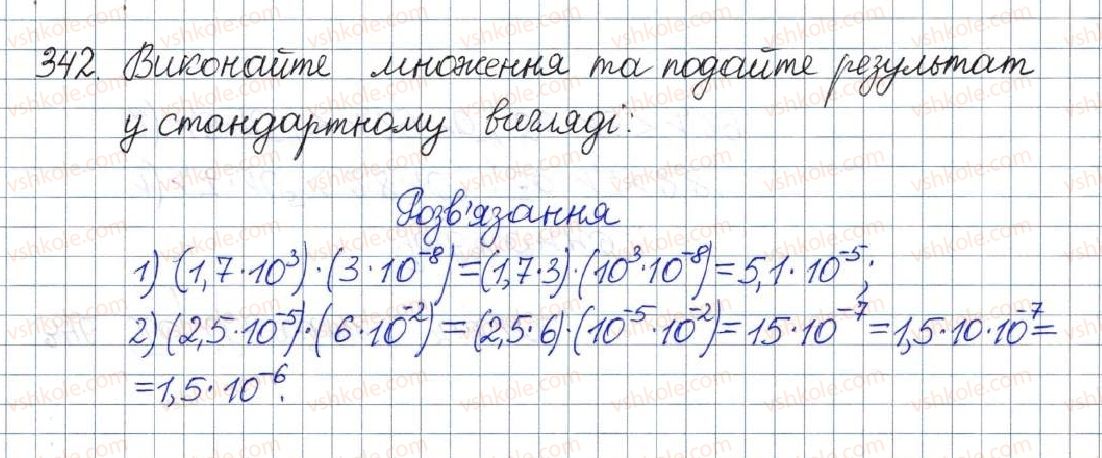 342. Виконайте множення та подайте результат
у стандартному вигляді:
Розв'язання
1) (1,7·10³)·(3·10⁻⁸)=(1,7·3)·(10³·10⁻⁸)=5,1·10⁻⁵;
2) (2,5·10⁻⁵)·(6·10⁻²)=(2,5·6)·(10⁻⁵·10⁻²)=15·10⁻⁷=1,5·10·10⁻⁷=
=1,5·10⁻⁶.